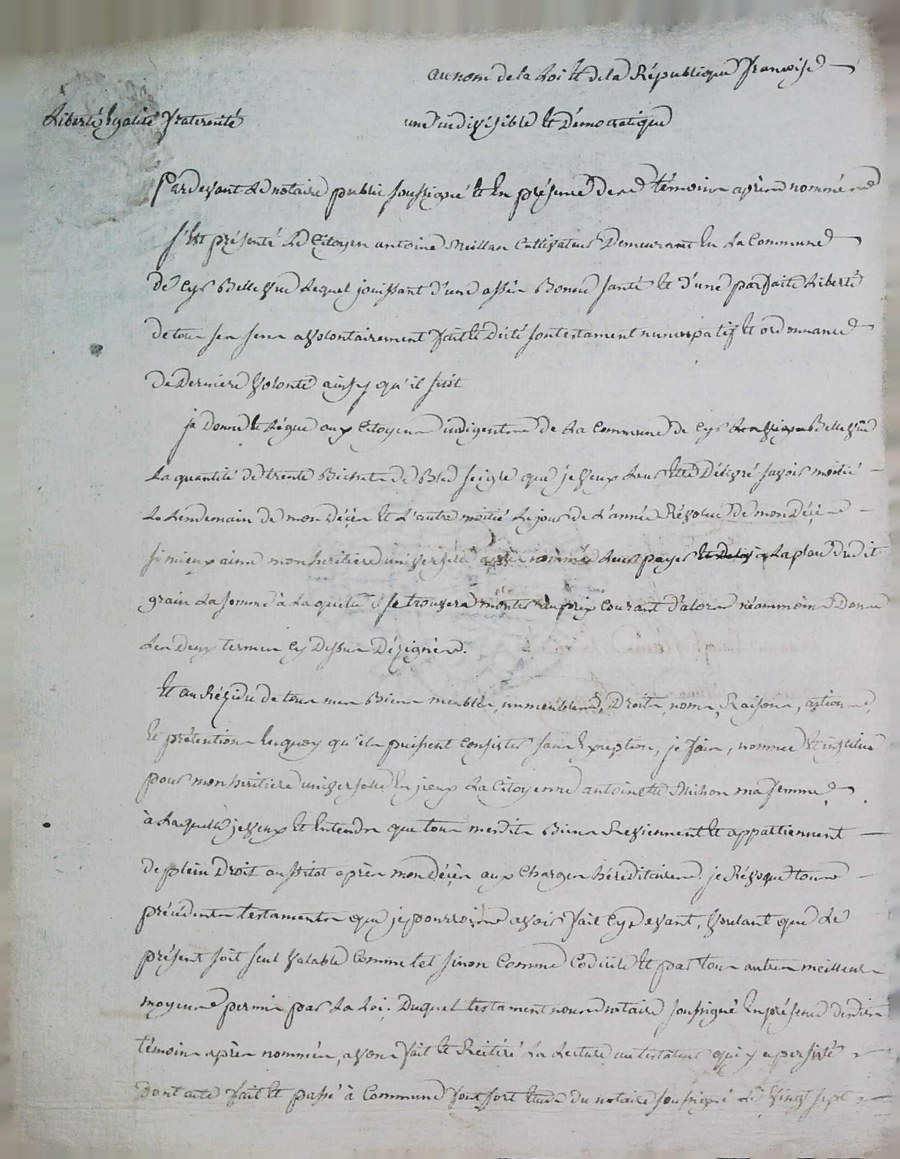 au nom de la Loi et de la République françoise
Liberté Egalité fraternité
une indivisible et Démocratique
Pardevant Le notaire public soussigné et En présence de temoins après nommés
s'Est présenté Le Citoyen antoine Cultivateur Demeurant En La Commune
de Cys Bellevue Lequel jouissant d'une assés Bonne santé et d'une parfaite Liberté
de tous ses sens a volontairement fait et dicté son testament nuncupatif et ordonnance
de Derniere volonté ainsy qu'il suit
je Donne et Légue aux Citoyens indigents de La Commune de Cys Bellevue
La quantité de trente Bichets de Bled seigle que je veux Leur être Délivré savoir moitié
Le Lendemain de mon Décès et L'autre moitié Le jour de L'année Révolue de mon Décès
si mieux aime mon heritiere universelle après nommée Leur payer a La place du dit
grain La somme à Laquelle il se trouvera monter au prix Courant d'alors néammoins Dans
Les Deux termes Cy Dessus Dézignés.
Et au Rézidu de tous mes Biens meubles, immeubles, Droits, noms, Raisons, actions,
et prétentions En quoy qu'ils puissent Consister sans Exception, je fais, nomme et institue
pour mon heritiere universelle En jceux La Citoyenne antoinette Michon ma femme
à Laquelle je veux et Entends que tous mesdits Biens Reviennent et appartiennent
de plein Droit aussitot après mon Décès aux Charges héréditaires. je Révoque tous
précédents testaments que je pourrois avoir fait Cy Devant, voulant que Le
présent soit seul valable Comme tel sinon Comme Codicile et par tous autres meilleurs
moyens permis par La Loi; Duquel testament nous notaire soussigné En présence desdits
témoins après nommés, avons fait et Reitéré La Lecture au testateur qui y a persisté
Dont acte fait et passé à Commune Etude du notaire soussigné Le vingt sept